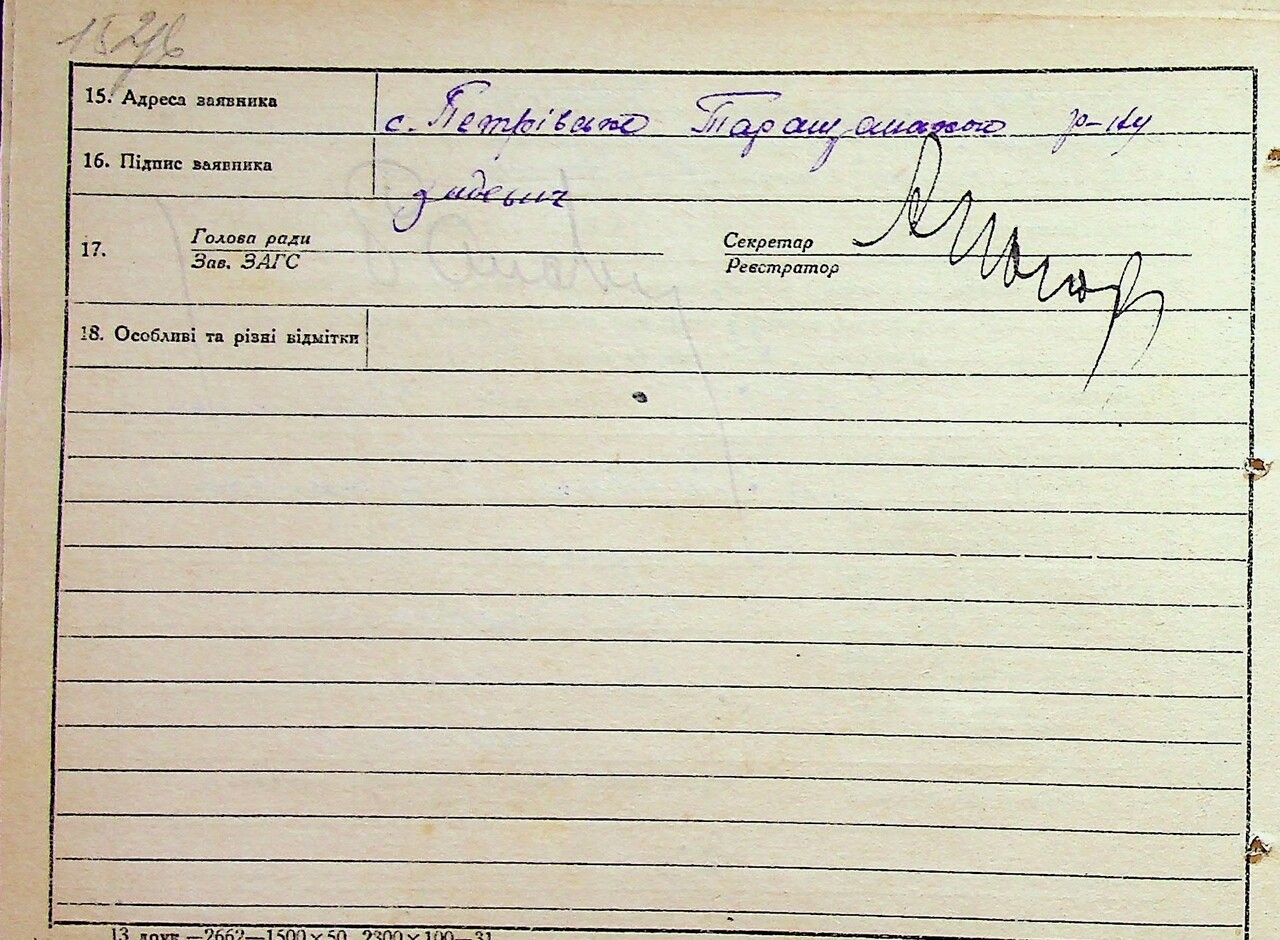 15. Адреса заявника с. Петрівське Таращанського р-ну
16. Підпис заявника
17. Голова ради Секретар
Зав. ЗАГС Реєстратор
18. Особливі та різні відмітки
13 друк.—2662—1500×50 2300×100—31